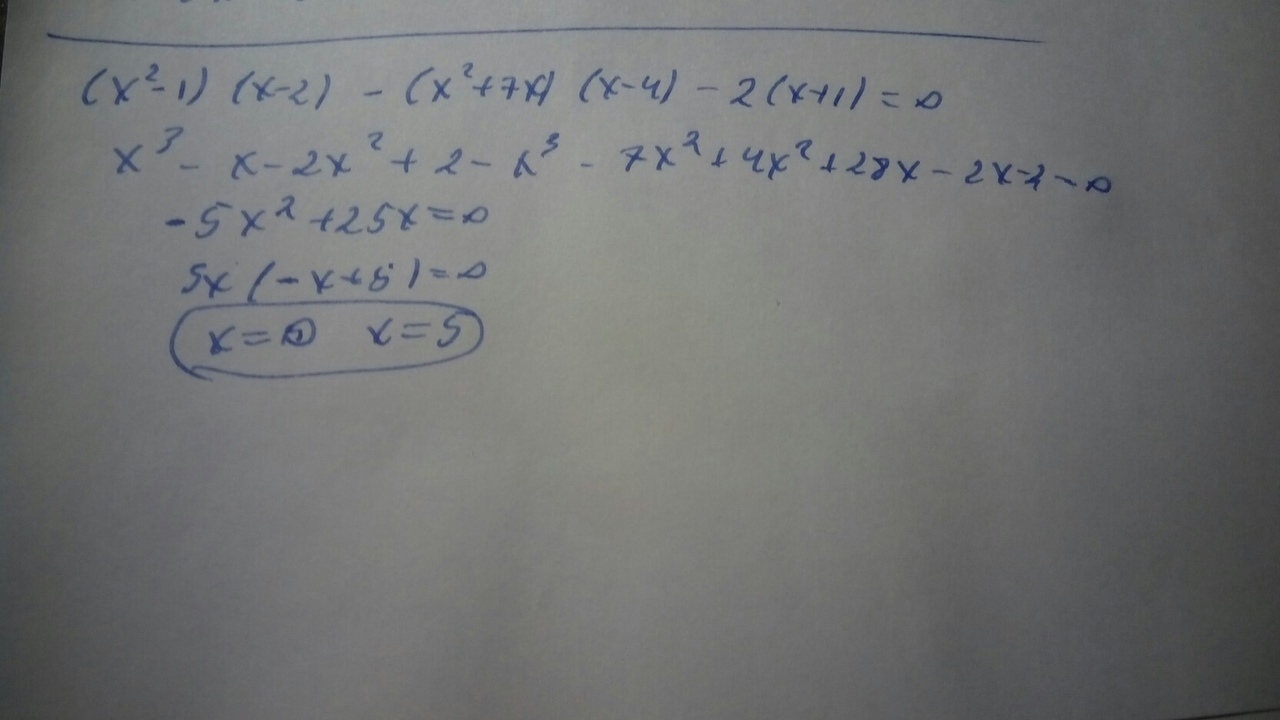 (x²-1) (x-2) - (x²+7x) (x-4) - 2(x+1) = 0
x³ - x - 2x² + 2 - x³ - 7x² + 4x² + 28x - 2x - 2 = 0
-5x² + 25x = 0
5x (-x+5) = 0
x = 0 x = 5